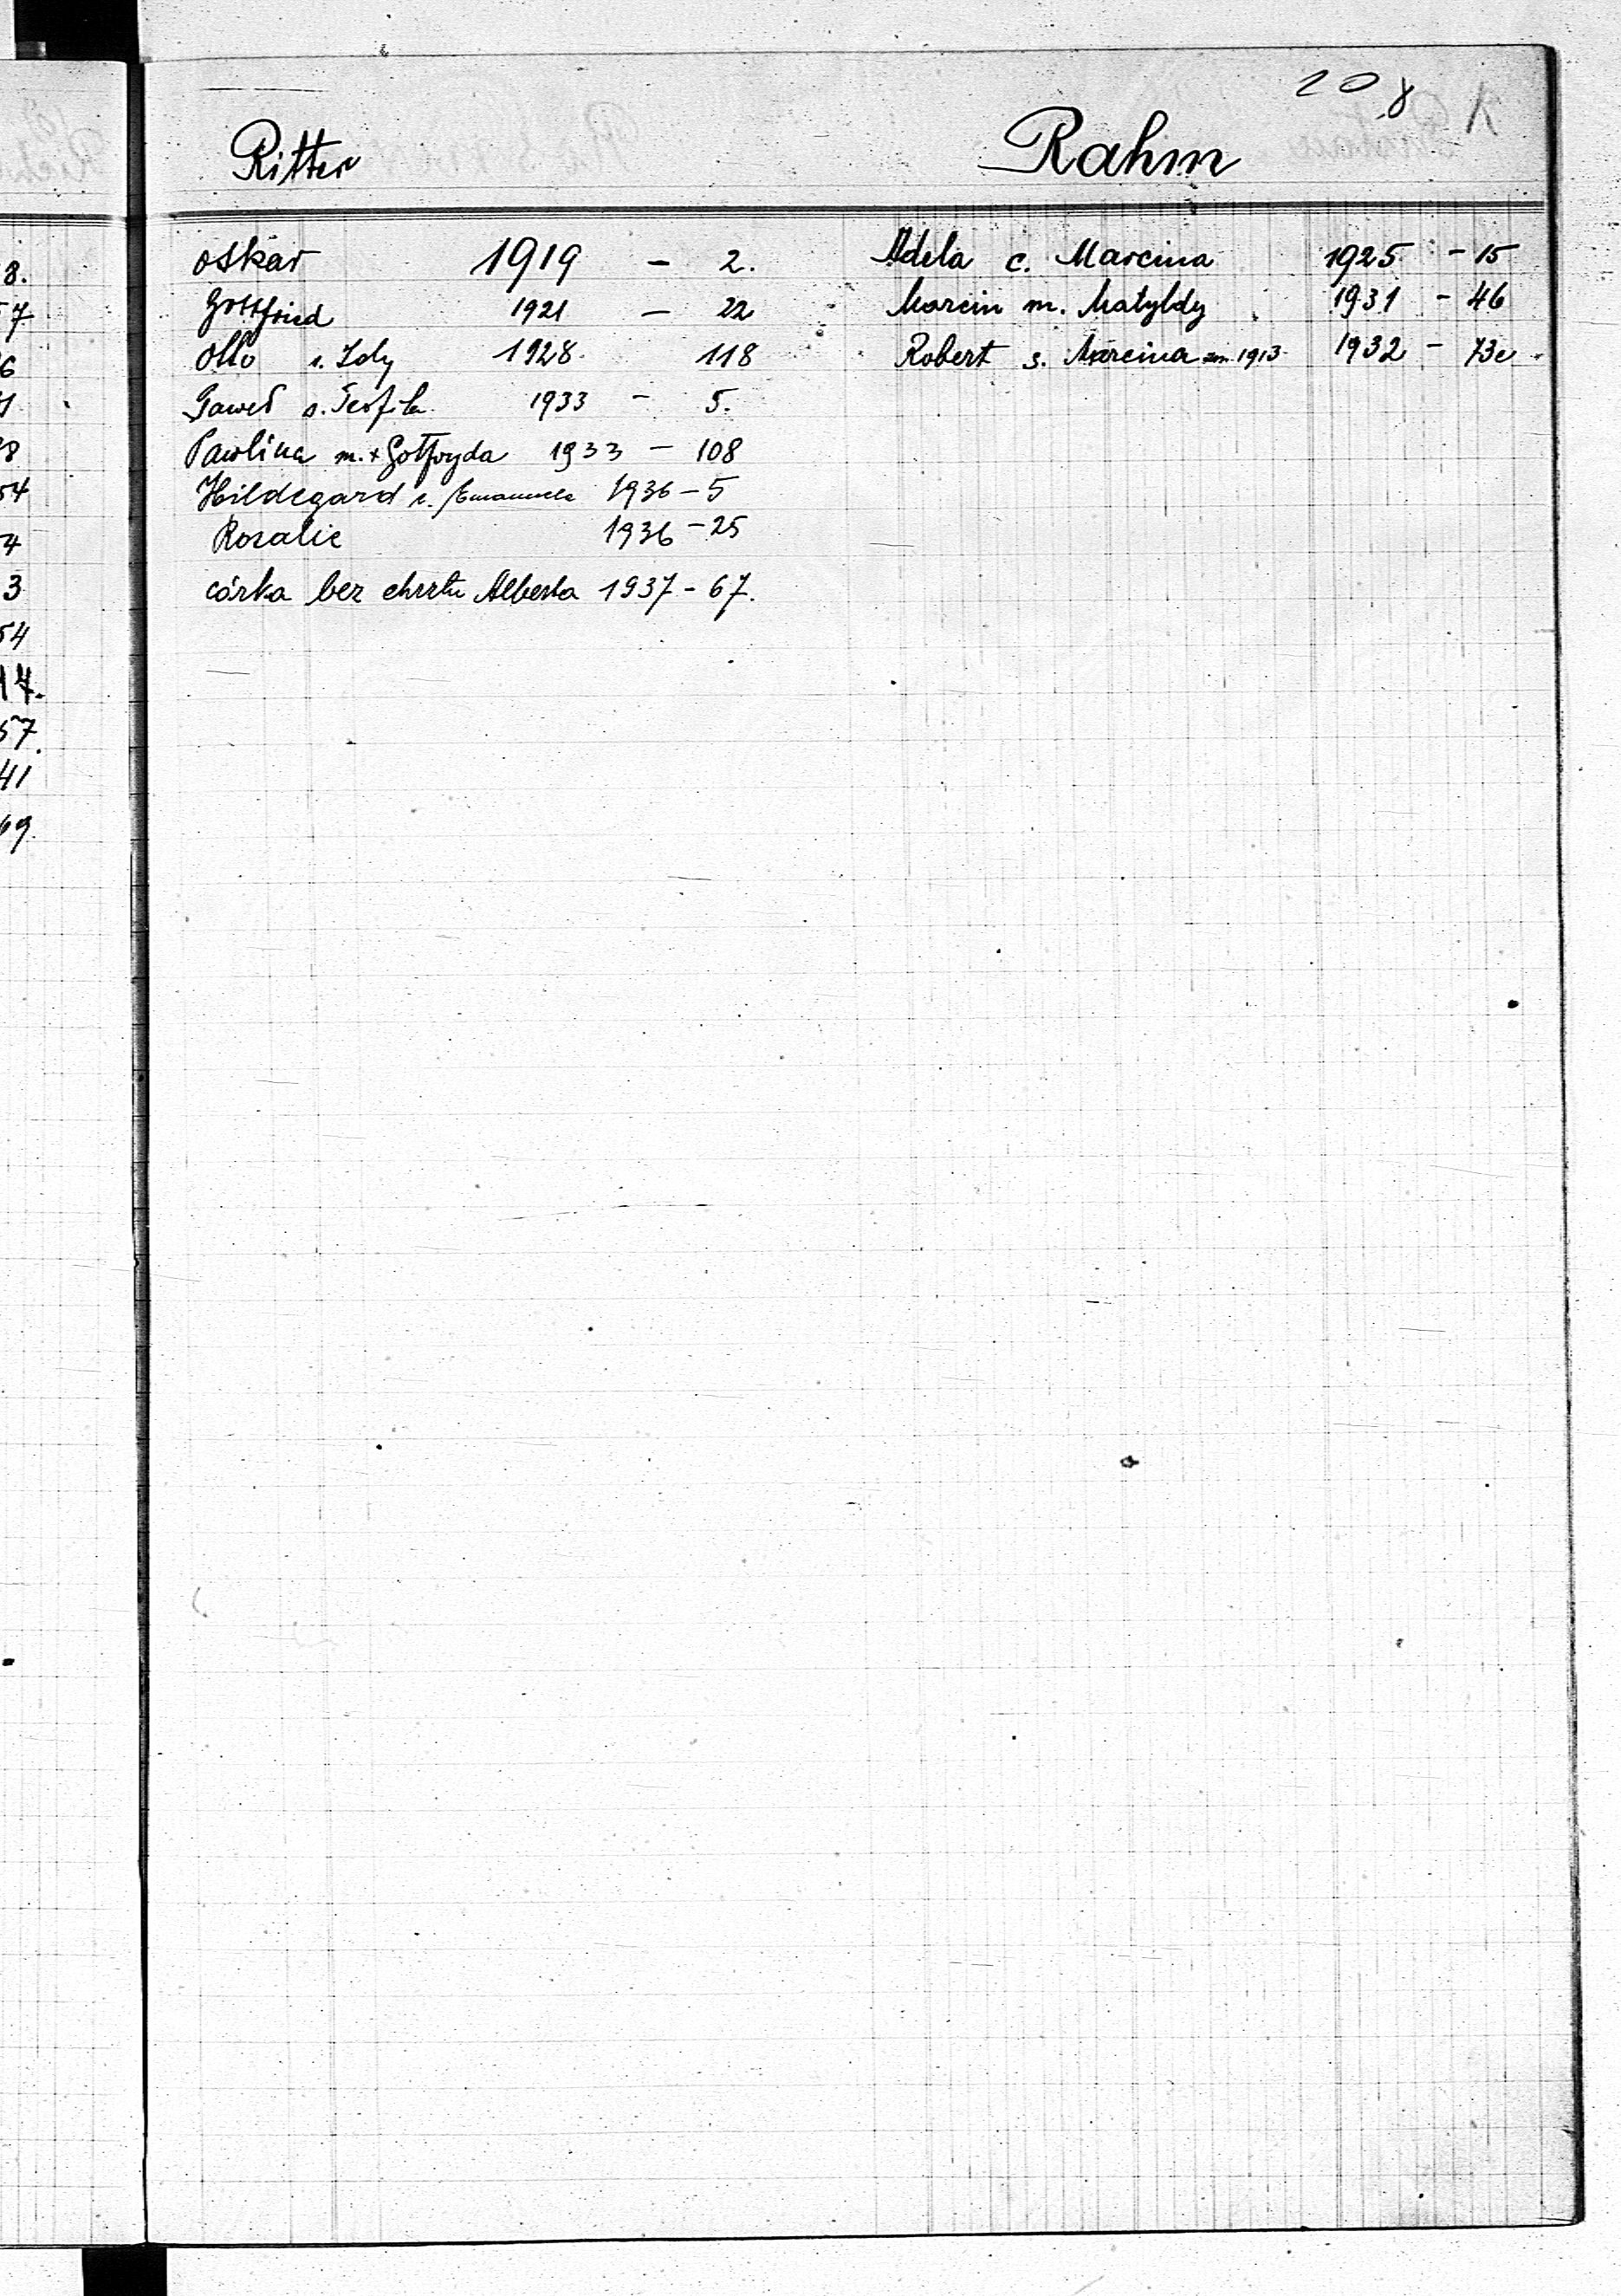 208 R
Ritter
Oskar 1919 - 2.
Gottfried 1921 - 22
Otto s. Idy 1928 118
Paweł s. Teofila 1933 - 5.
Paulina m. + Gotfryda 1933 - 108
Hildegard c. Emanuela 1936 - 5
Rozalie 1936 - 25
córka bez chrztu Alberta 1937 - 67.
Rahm
Adela c. Marcina 1925 - 15
Marcin m. Matyldy 1931 - 46
Robert s. Marcina zm. 1913 1932 - 73c
8.
57
6
1
8
54
4
3
54
17.
57.
41
69.